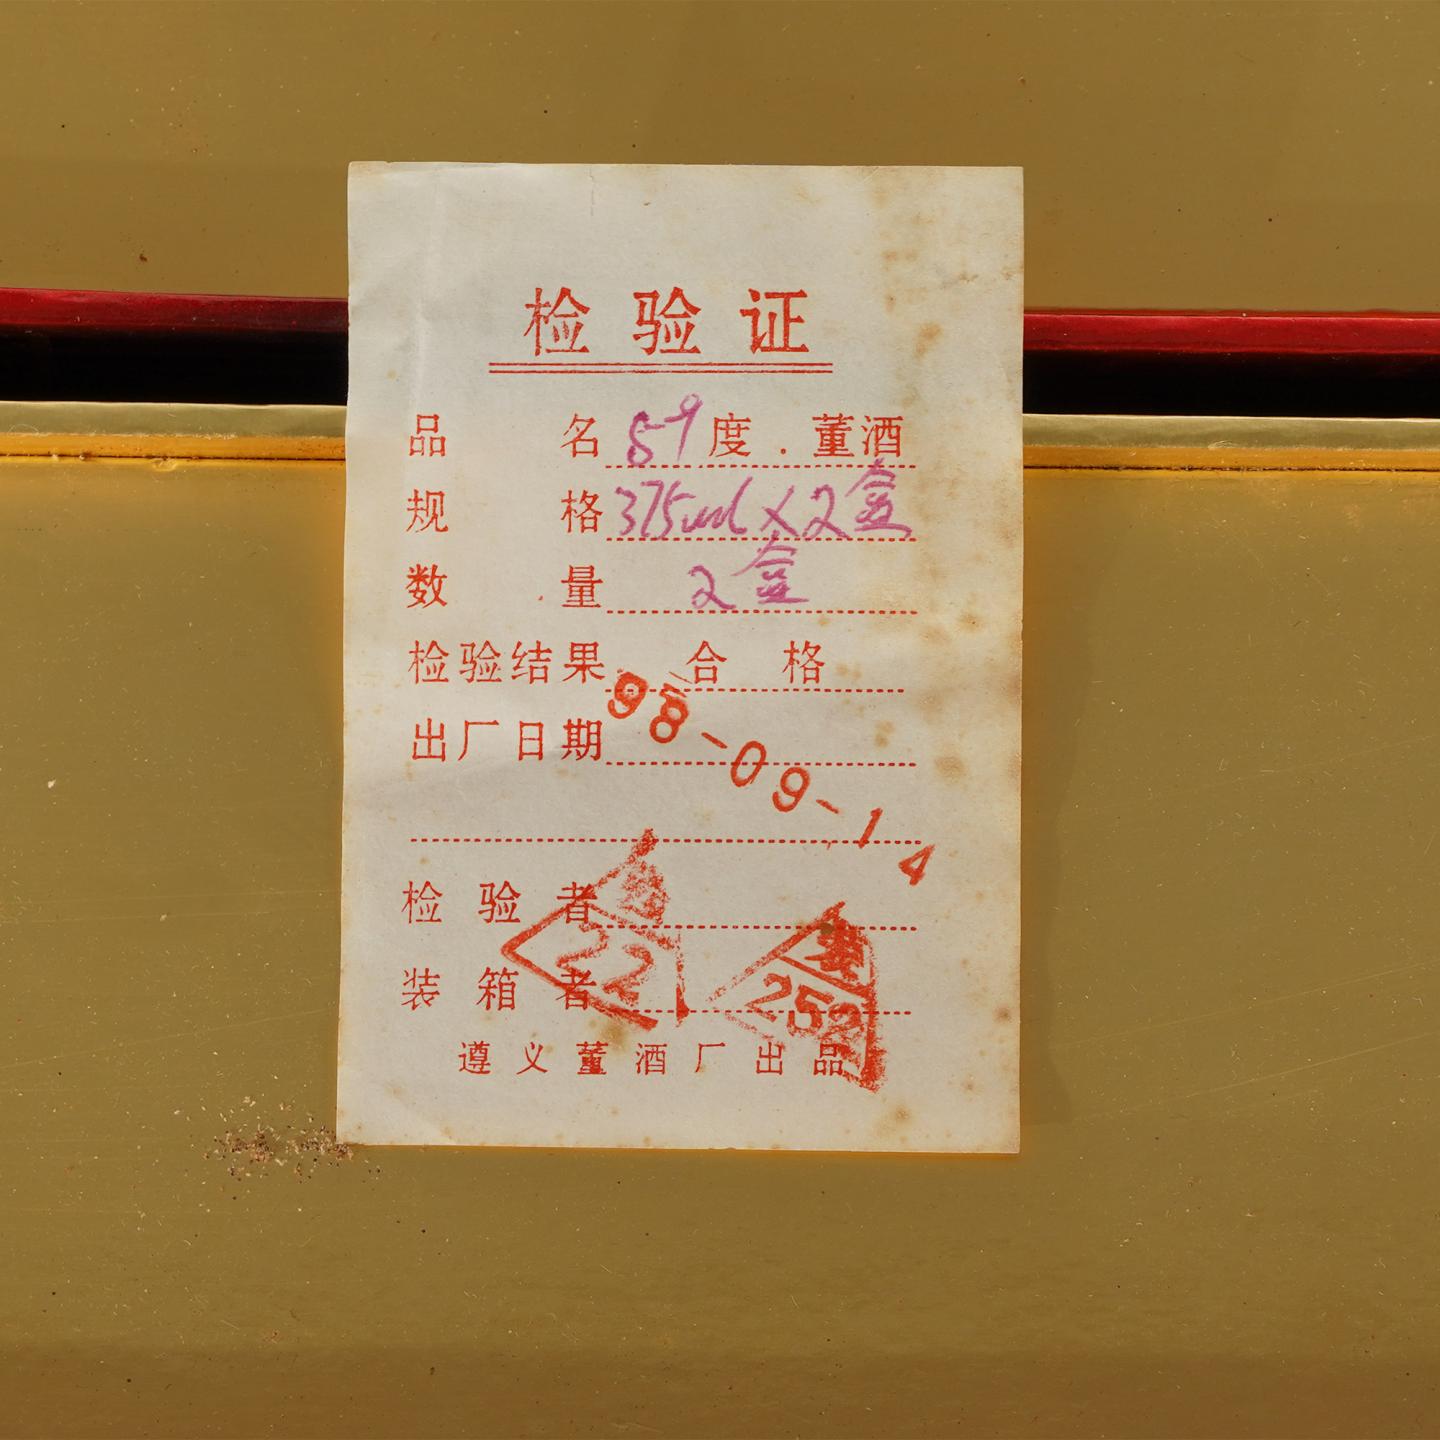 检验证
品名 59度.董酒
规格 375ml×2盒
数量 2盒
检验结果 合格
出厂日期 98-09-14
检验者 22
装箱者 252
遵义董酒厂出品